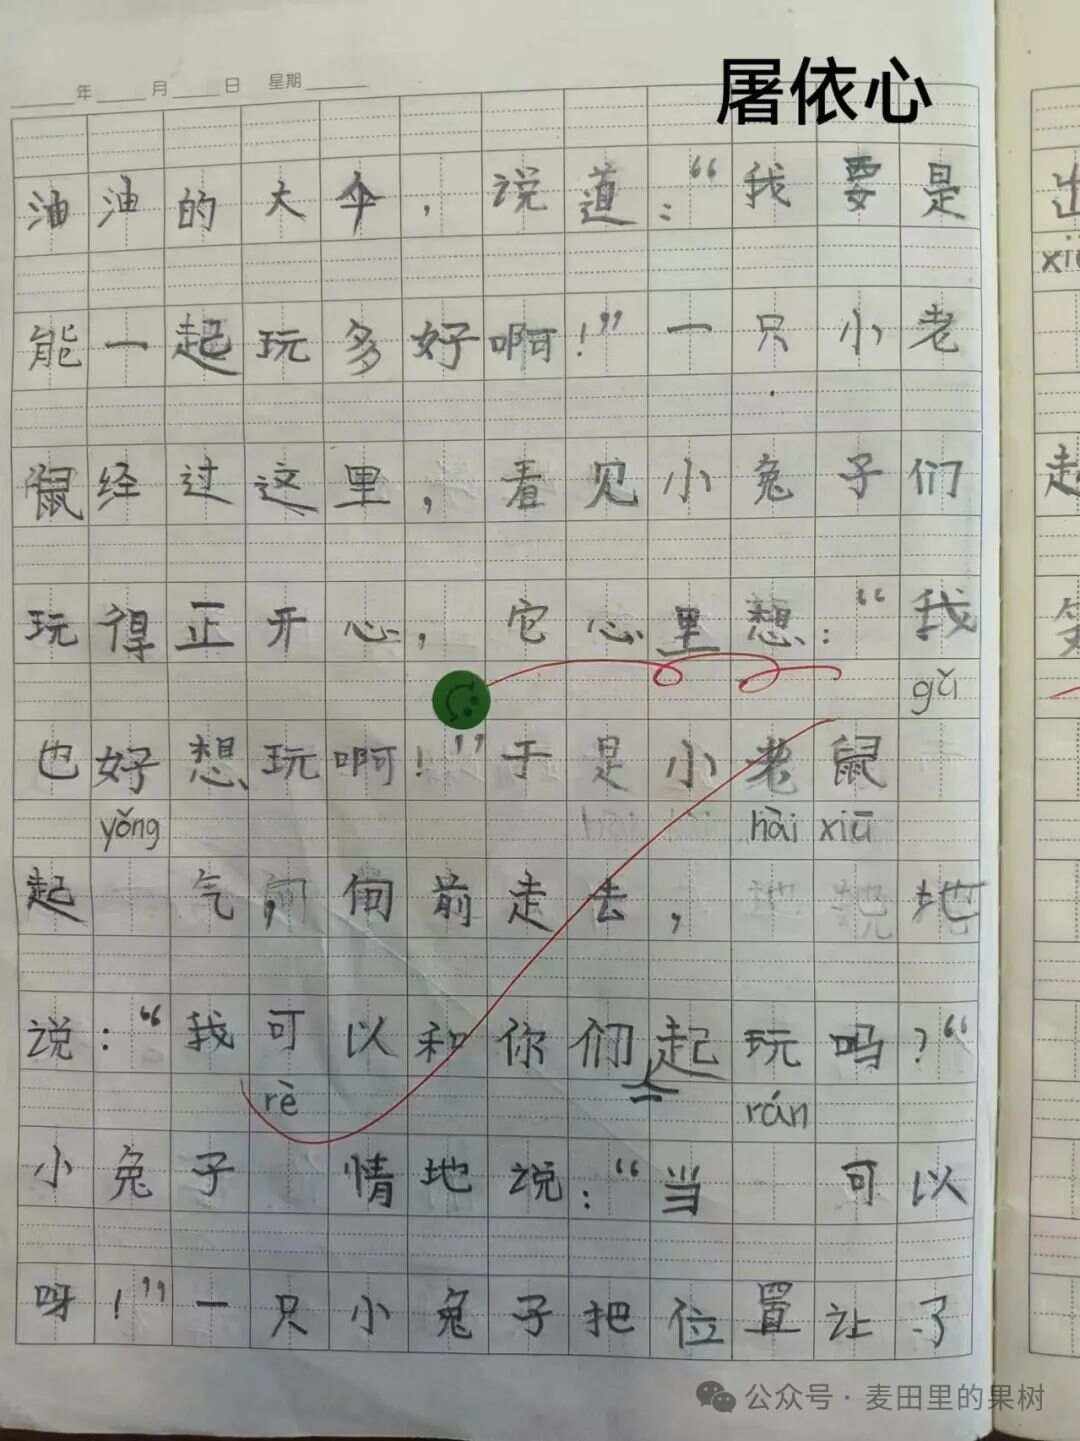 屠依心
年 月 日 星期
油油的大伞，说道：“我要是
能一起玩多好啊！”一只小老
鼠经过这里，看见小兔子们
玩得正开心，它心里想：“我
gǔ
也好想玩啊！”于是小老鼠
yǒng hài xiū
起 气，向前走去， 地
说：“我可以和你们一起玩吗？“
rè rán
小兔子 情地说：“当 可以
呀！”一只小兔子把位置让了
公众号·麦田里的果树